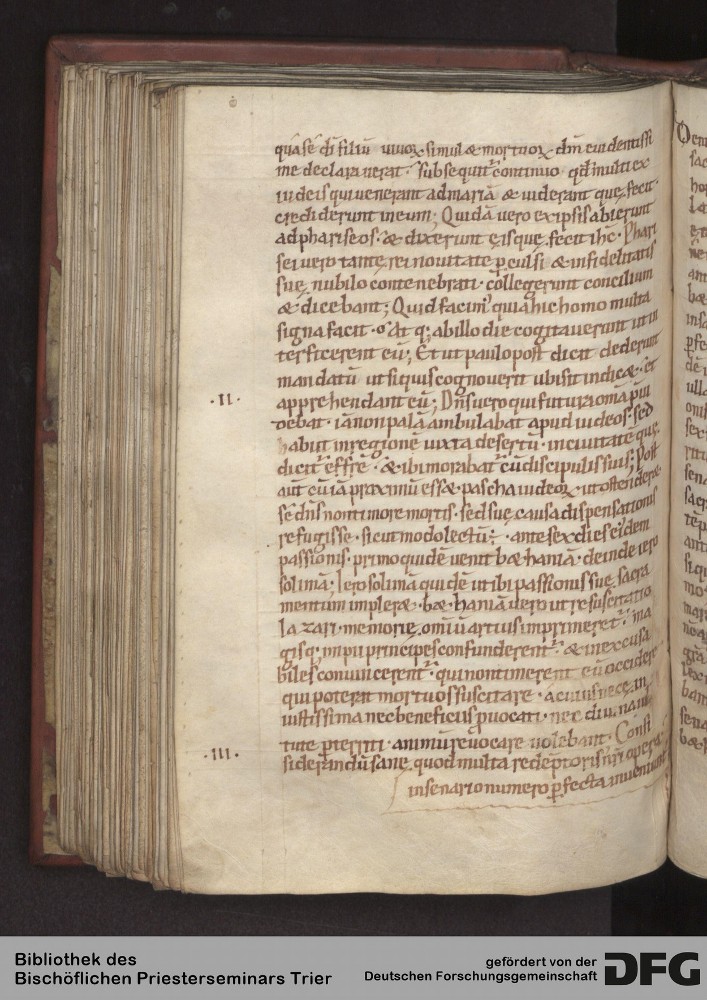 quia se di filiu uiuoꝝ simul & mortuoꝝ dm euidentissi
me declarauerat. Subsequit continuo qd multi ex
iudeis qui uenerant ad mariā & uiderant quę fecit.
crediderunt in eum; Quidā uero ex ipsis abierunt
ad phariseos. & dixerunt eis quę fecit ihc. Phari
sei uero tantę rei nouitate ꝑculsi & infidelitatis
suę nubilo contenebrati. collegerunt concilium
& dicebant; Quid facim' quia hic homo multa
signa facit. At q; ab illo die cogitauerunt ut in
terficerent eū; Et ut paulo post dicit dederunt
mandatū ut siquis cognouerit ubi sit indic&. et
apprehendant eū; Dns uero qui futura omā pui
·II·
debat. iā non palā ambulabat apud iudeos. sed
habiit in regionē iuxta desertū. in ciuitatē quę
dicit effrē. & ibi morabat cū discipulis suis; Post
aut cū iā proximū ess& pascha iudeoꝝ. ut ostender&
se dns non timore mortis. sed suę causa dispensationis
refugisse. sicut modo lectū. ante sex dies eidem
passionis. primo quidē uenit b&haniā. deinde iero
solimā; Ierosolimā quidē ut ibi passionis suę sacra
mentum impler&. b&haniā uero ut resuscitatio
lazari. memorię omiū artius imprimeret. ma
gisq; impii principes confunderent. & inexcusa
biles conuincerent. qui non timerent eū occidere
qui poterat mortuos suscitare.
iustissima nec beneficiis ꝓuocati. nec diuina uir
tute ꝑterriti. animū reuocare nolebant. Consi
·III·
siderandū sane quod multa redeptoris nri opera
in senario numero ꝑfecta inueniunt
Bibliothek des
Bischöflichen Priesterseminars Trier
gefördert von der
Deutschen Forschungsgemeinschaft
DFG